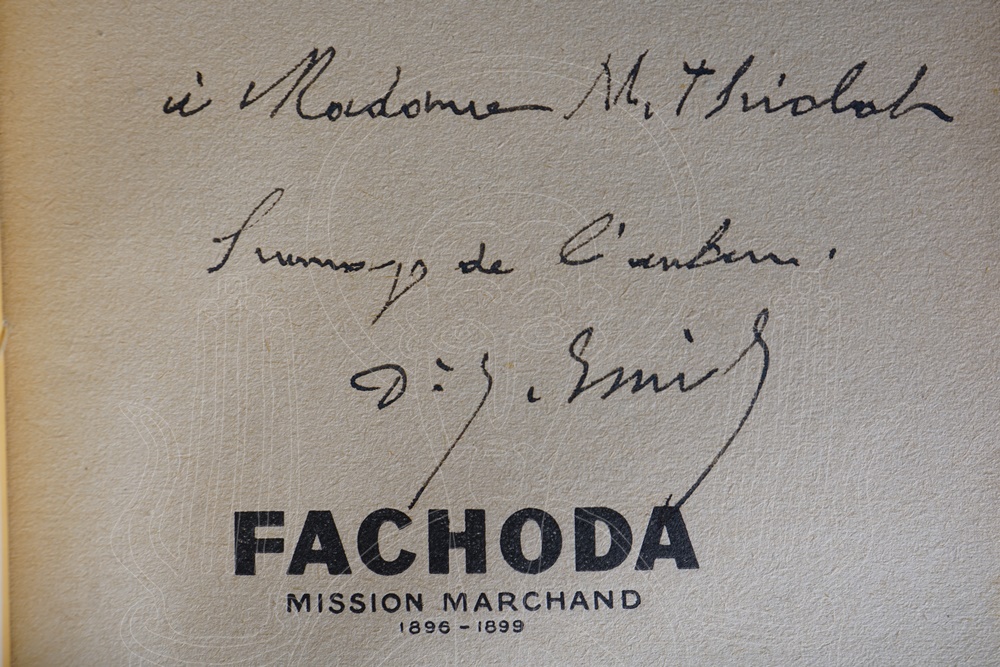 à Madame M. Thiolat
hommage de l'auteur.
Dr J. Emily
FACHODA
MISSION MARCHAND
1896 - 1899